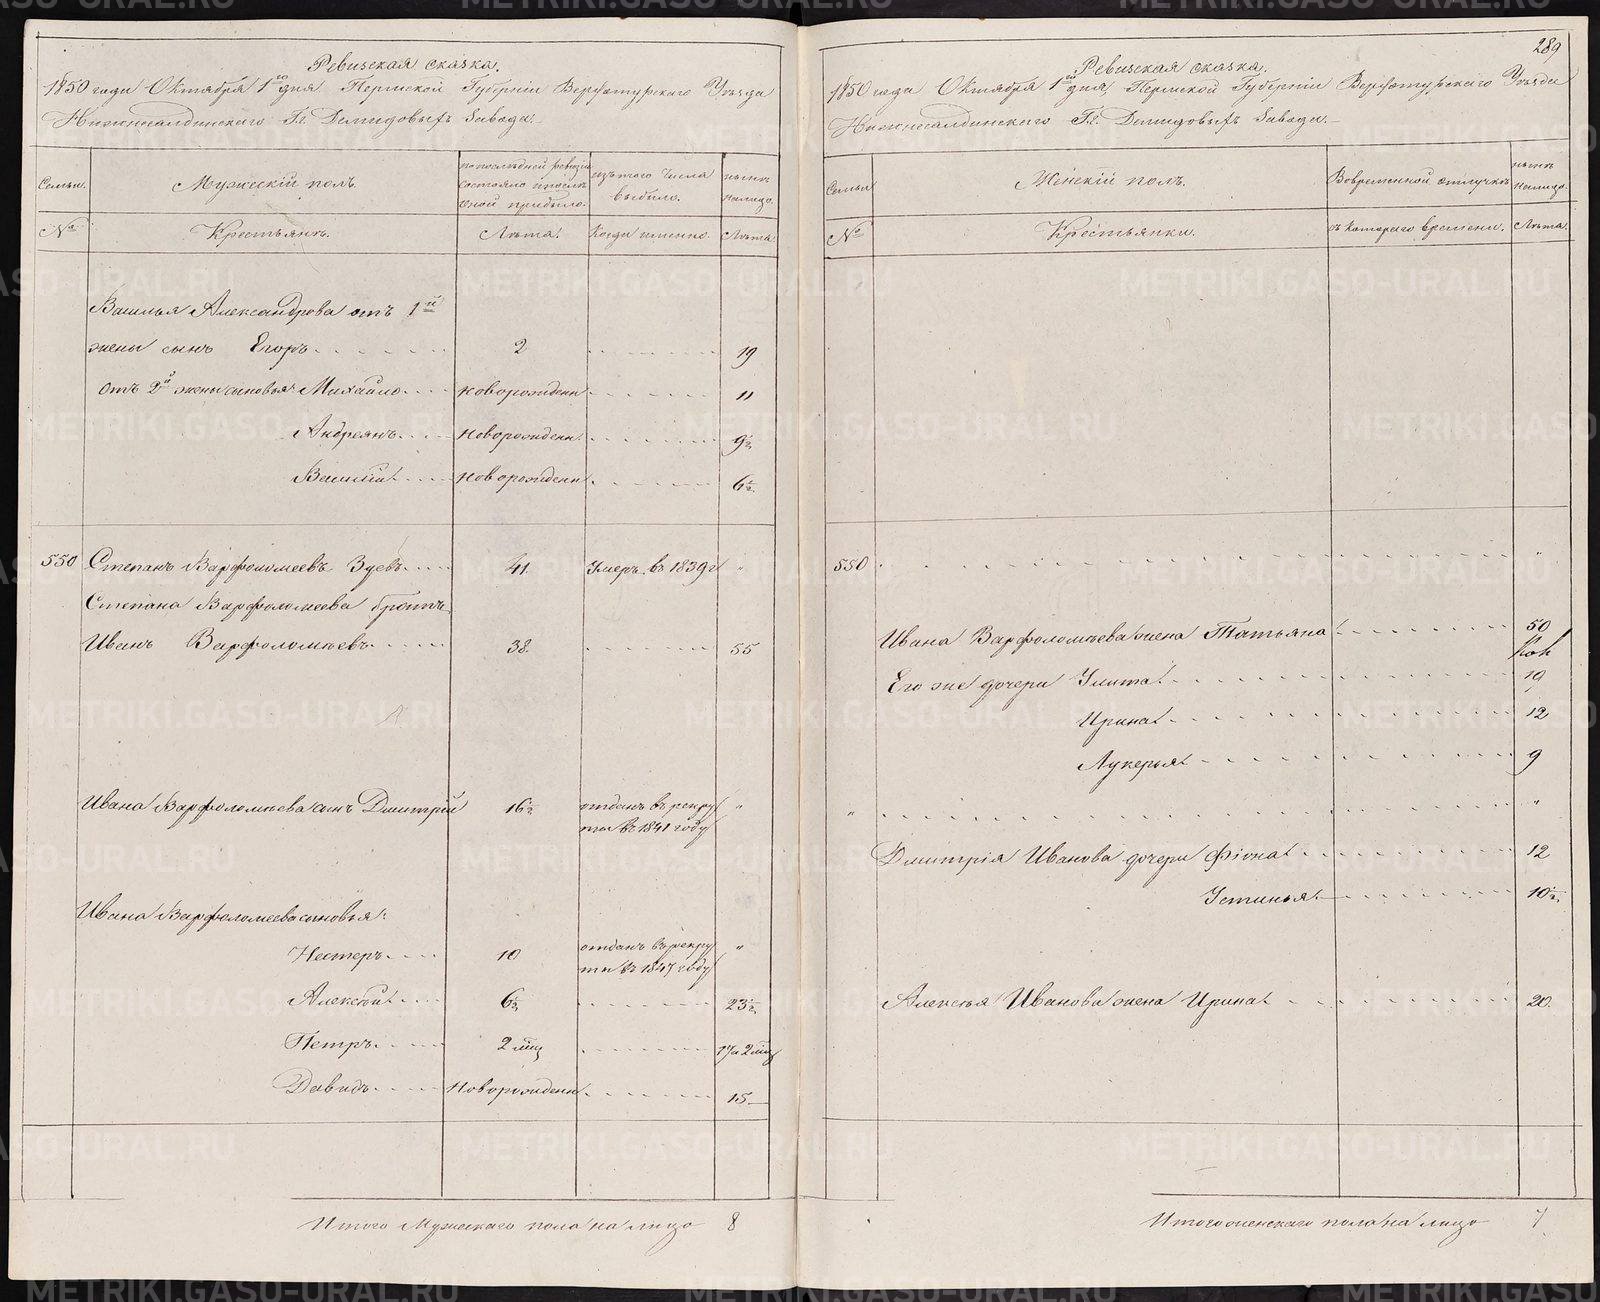 Ревизская сказка.
1850 года Октября 1го дня Пермской Губерніи Верхотурскаго Уѣзда
Нижнесалдинскаго Гг. Демидовыхъ Завода.
Семьи. Мужескій полъ. по последней ревизіи состояло и после оной прибыло. изъ того числа выбыло. нынѣ на лицо.
№ Крестьянъ. Лѣта. Когда именно. Лѣта
Василья Александрова отъ 1й
жены сынъ Егоръ 2 19
отъ 2й жены сыновья Михайло новорожденъ 11
Андреянъ новорожденъ 9½
Василій новорожденъ 6½
550 Степанъ Варфоломеевъ Зуевъ 41. Умеръ въ 1839 г "
Степана Варфоломеева братъ
Иванъ Варфоломѣевъ 38. 55
Ивана Варфоломѣева сынъ Дмитрій 16½ отданъ въ рекру "
ты въ 1841 году
Ивана Варфоломеева сыновья:
Нестеръ 10 отданъ въ рекру "
ты въ 1847 году
Алексѣй 6½ 23½
Петръ 2 мцъ 17 и 2 мцъ
Давидъ Новорожденъ 15
Итого Мужескаго пола на лицо 8
289
Ревизская сказка.
1850 года Октября 1го дня Пермской Губерніи Верхотурскаго Уѣзда
Нижнесалдинскаго Гг. Демидовыхъ Завода.
Семьи Женскій полъ. Во временной отлучкѣ нынѣ на лицо.
№ Крестьянки. съ котораго времени. Лѣта.
550 "
Ивана Варфоломѣева жена Татьяна 50
Его же дочери Улита 19
Ирина 12
Лукерья 9
" "
Дмитрія Иванова дочери Фіона 12
Устинья 10½
Алексѣя Иванова жена Ирина 20.
Итого женскаго пола на лицо 7
METRIKI.GASO-URAL.RU